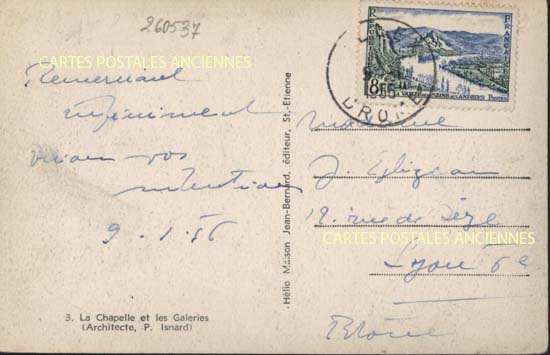 260537
CARTES POSTALES ANCIENNES
Remerciant
infiniment
vos
intention
9-1-56
3. La Chapelle et les Galeries
(Architecte, P. Isnard)
Hélio Maison Jean-Bernard, éditeur, St.-Etienne
REPUBLIQUE FRANCAISE
8F
VALLEE DE LA SEINE AUX ANDELYS
Postes
DROME
Madame
rue de Sèze
CARTES POSTALES ANCIENNES
Lyon 6e
Rhône